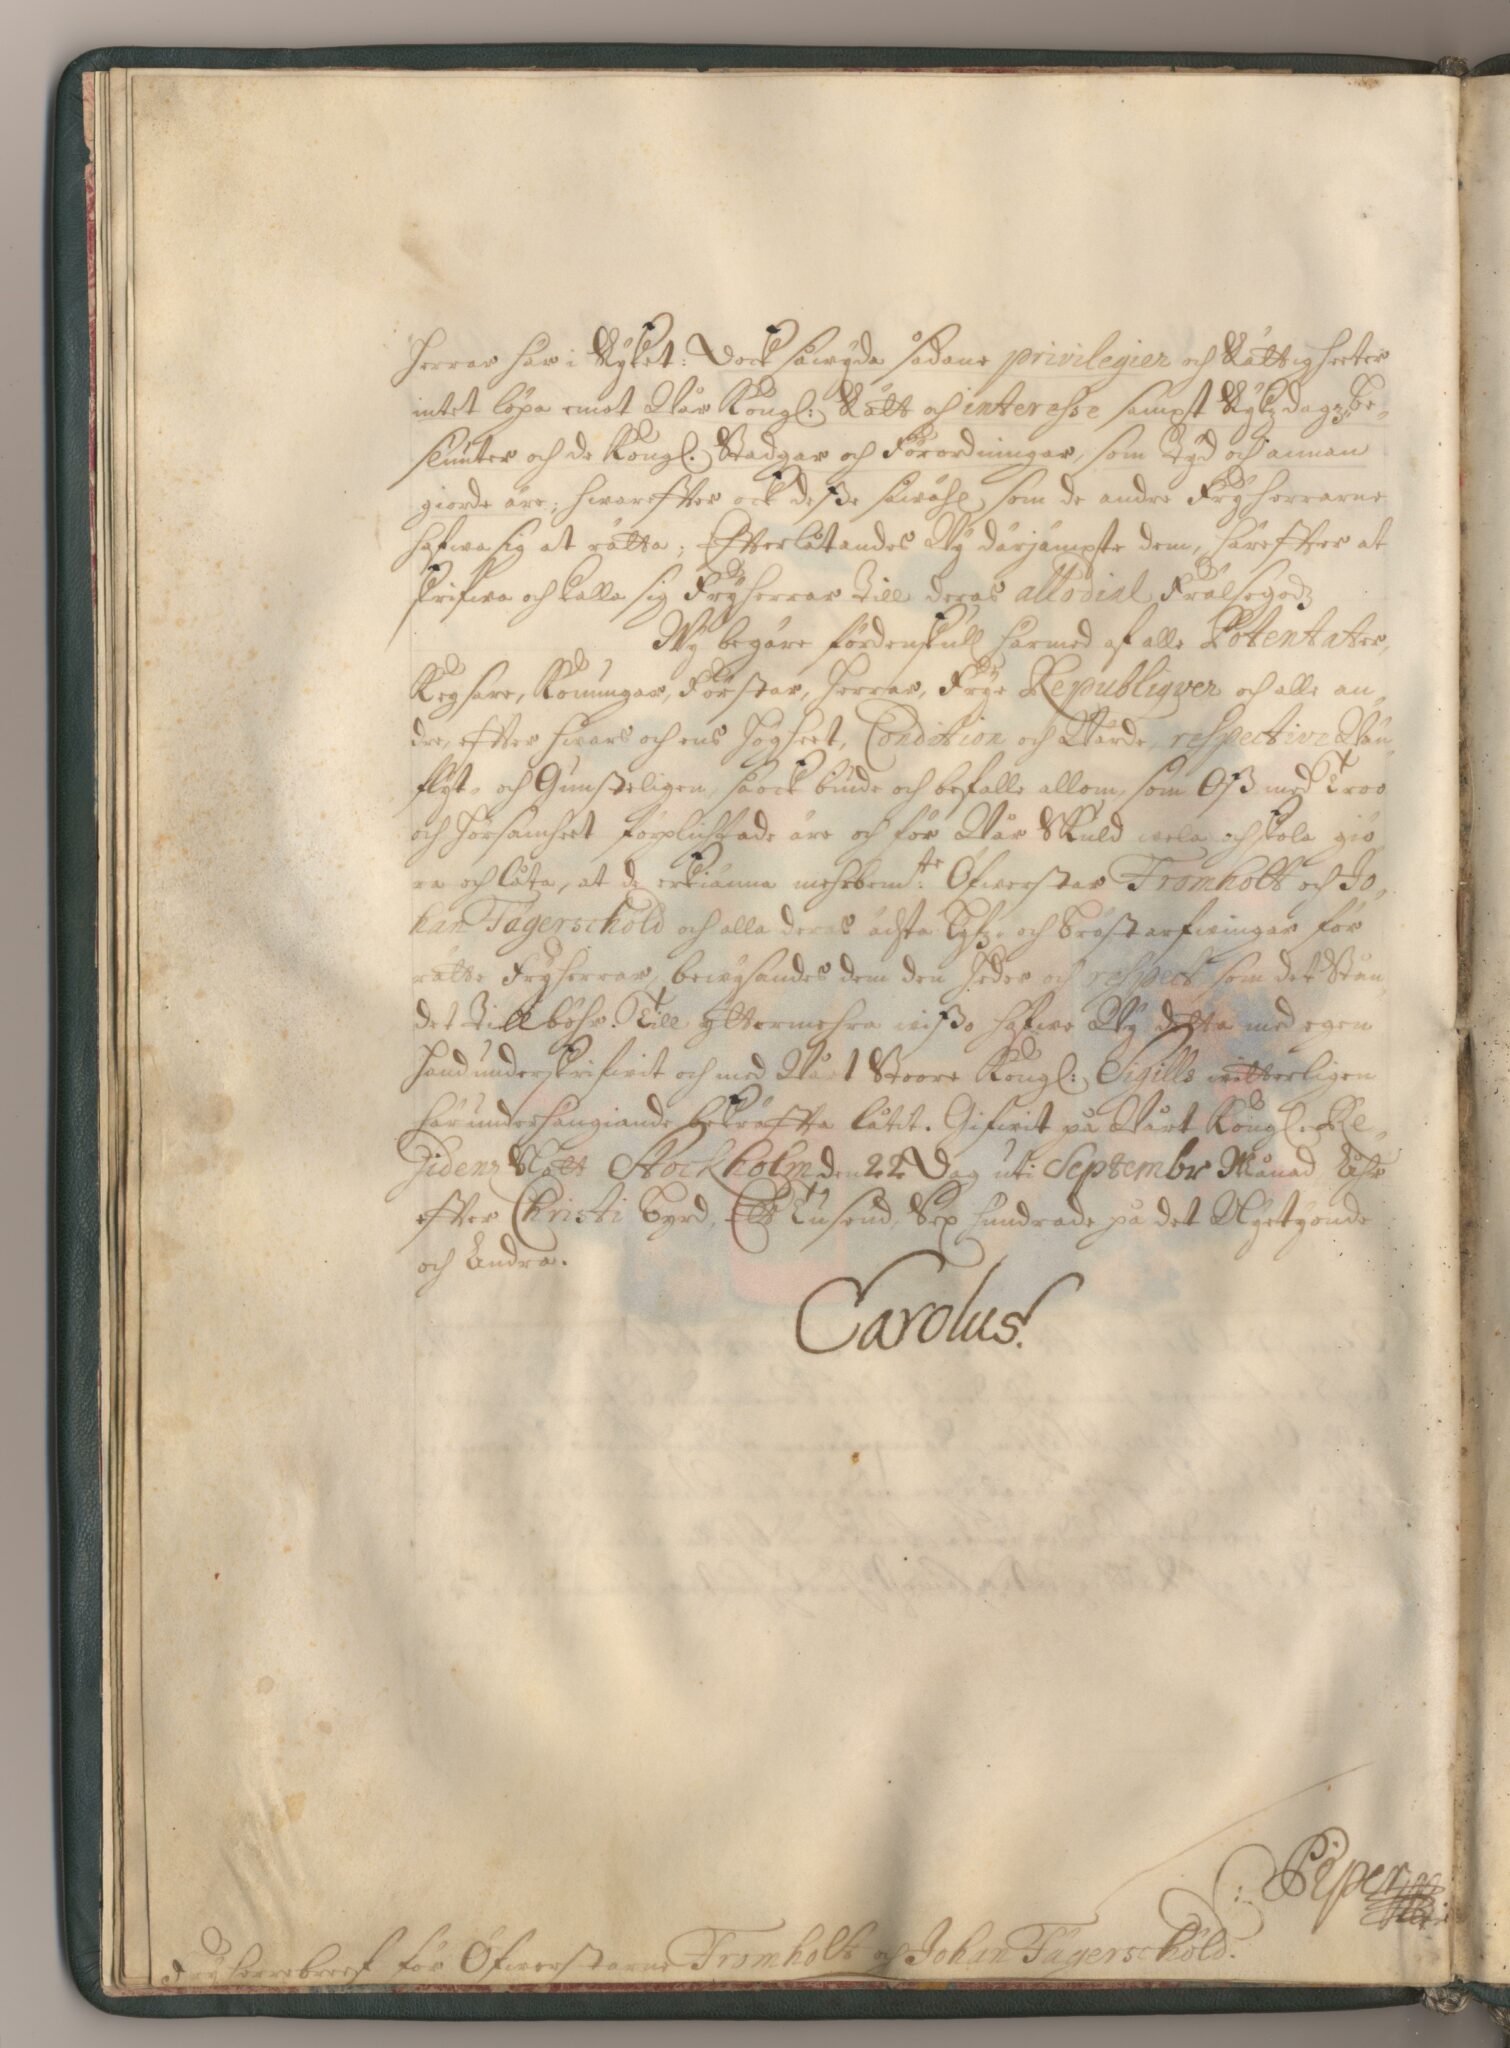 Herrar här i Ryket: Dock såwyda sådane privilegier och Rättigheeter
intet löpa emot Wår Kongl: Rätt och interesse sampt Rykzdagz Be-
sluuter och de Kongl. Stadgar och Förordningar, som Tyd och annan
giorde äre; hwareffter ock desze såwähl som de andre Fryherrarne
hafwa sig at rätta; Effterlåtandes Wy därjämpte dem, häreffter at
skrifwa och kalla sig Fryherrar till deras allodial Frälsegodz
Wy begäre fördenskull härmed af alle Potentater,
Keysare, Konungar, Förstar, Herrar, Frye Republiqver och alle an-
dre, effter hwars och ens Högheet, Condition och Wärde, respective Wän-
flyt- och Gunsteligen, så ock biude och befalle allom, som Osz med Troo
och Hörsamheet förplichtade äre och för Wår Skuld wela och skola giö-
ra och låta, at de erkiänna mehrbem:te Öfwerstar Fromholt och Jo-
han Tägerschöld och alla deras ächta Lyfz- och Bröstarfwingar för
rätte Fryherrar, bewysandes dem den Heder och respect, som det Stån-
det tillböhr. Till yttermehra wiszo hafwe Wy detta med egen
Hand underskrifwit och med Wårt Stoore Kongl: Sigill witterligen
här underhängiande bekräffta låtit. Gifwit på Wårt Kongl. Re-
sidenz Slott Stockholm, den 22 Dag uti Septembr Månad, Åhr
effter Christi Byrd, Ett Tusend, Sex hundrade på det Nyetyonde
och Andra.
Carolus.
Piper
Fryherrebreef för Öfwerstarne Fromholt och Johan Tägerschöld.